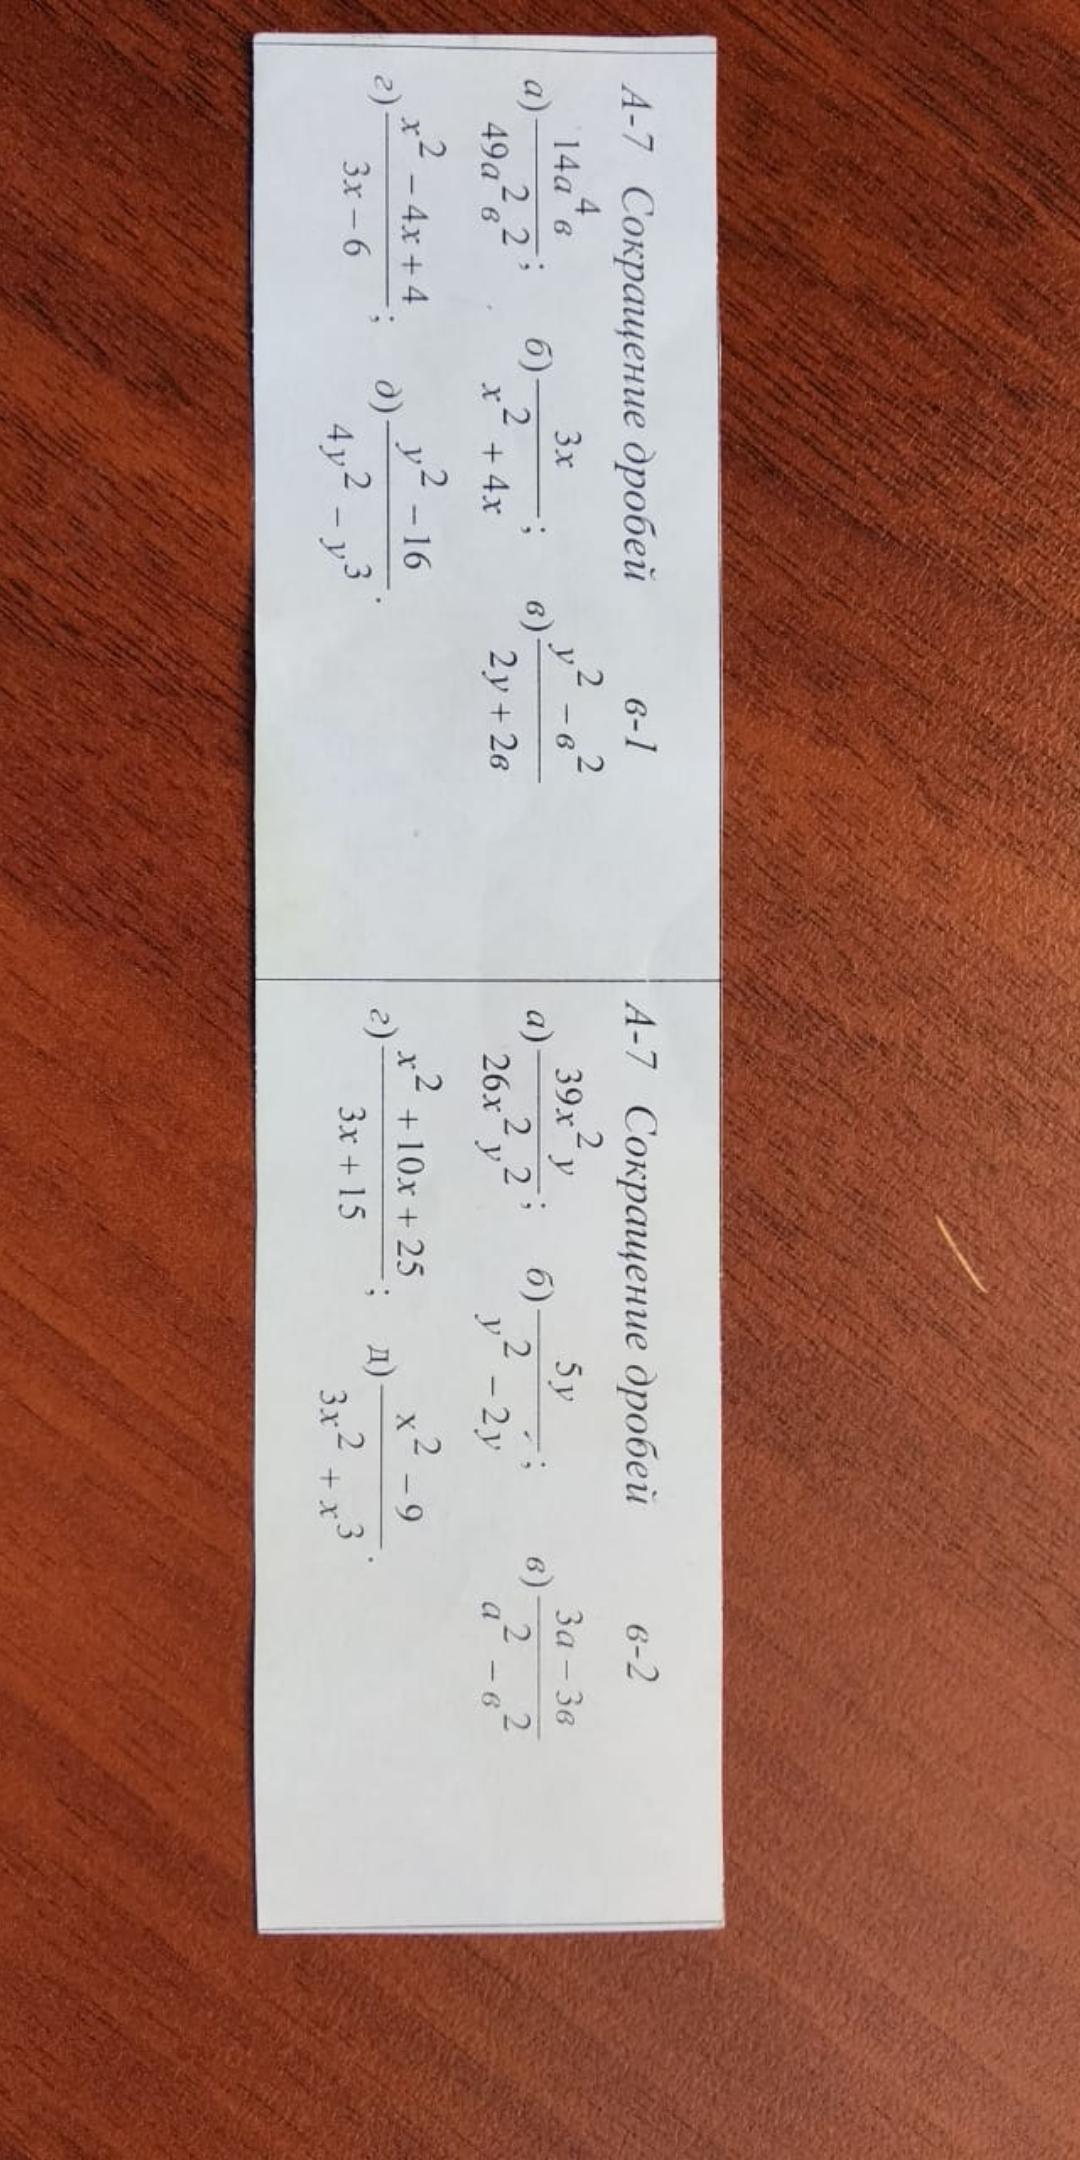 А-7 Сокращение дробей в-1
а) 14а⁴в / 49а²в²; б) 3x / x² + 4x; в) y² − в² / 2y + 2в
г) x² − 4x + 4 / 3x − 6; д) y² − 16 / 4y² − y³.
А-7 Сокращение дробей в-2
а) 39x²y / 26x²y²; б) 5y / y² − 2y; в) 3а − 3в / а² − в²
г) x² + 10x + 25 / 3x + 15; д) x² − 9 / 3x² + x³.